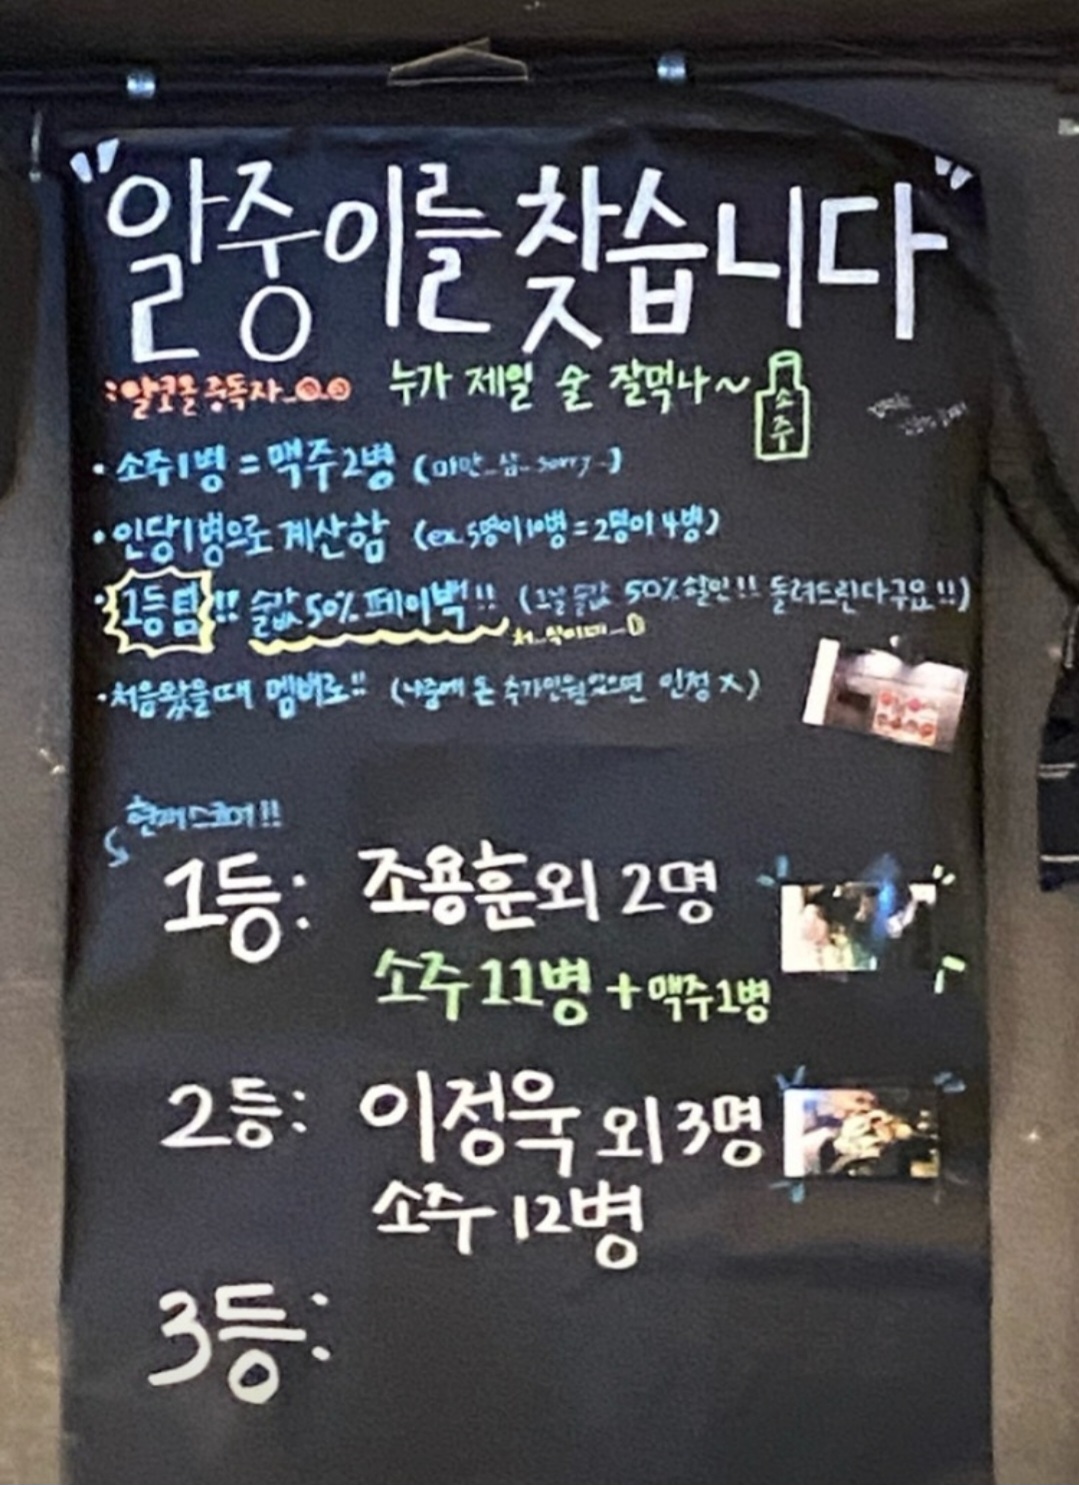 "알중이를 찾습니다"
:알코올 중독자
누가 제일 술 잘먹나~
소주
· 소주1병 = 맥주2병 (미안 sorry..)
· 인당1병으로 계산함 (ex. 5명이10병 = 2명이 4병)
· 1등팀!! 술값 50% 페이백!! (그날 술값 50% 할인!! 돌려드린다구요!!)
· 처음왔을때 멤버로!! (나중에 온 추가인원있으면 인정 X)
현재스코어!!
1등: 조용훈외 2명
소주 11병 + 맥주1병
2등: 이정욱 외 3명
소주 12병
3등: